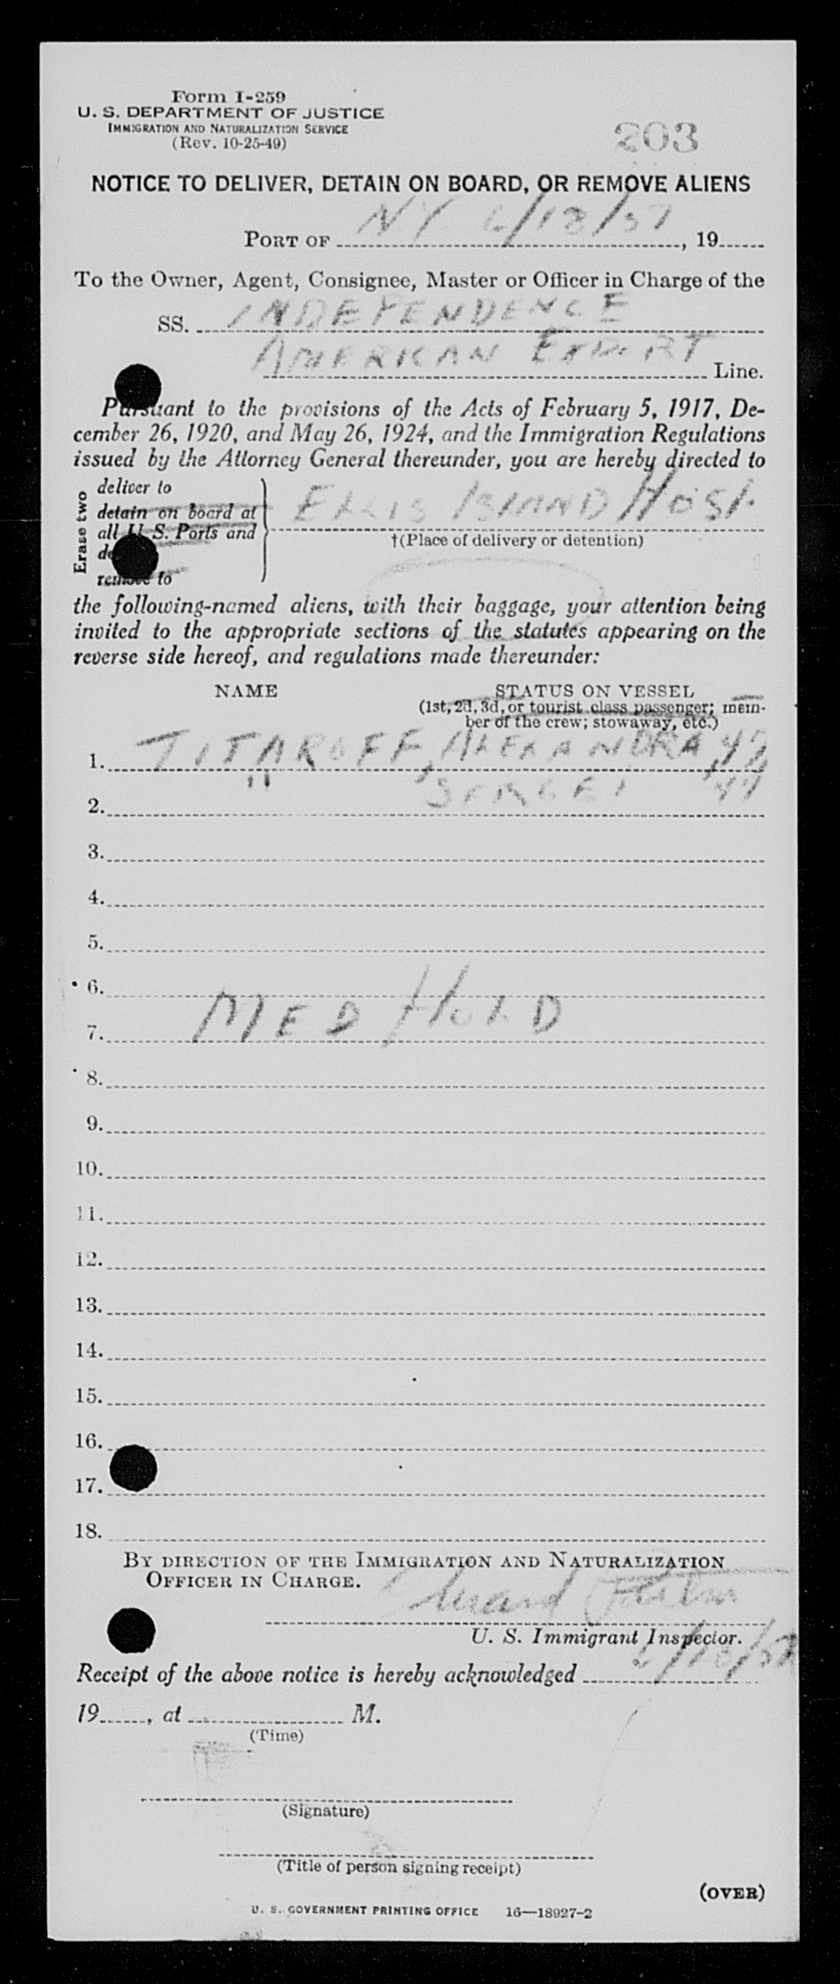 Form I-259
U. S. DEPARTMENT OF JUSTICE
IMMIGRATION AND NATURALIZATION SERVICE
(Rev. 10-25-49)
203
NOTICE TO DELIVER, DETAIN ON BOARD, OR REMOVE ALIENS
PORT OF NY 6/18/51, 19
To the Owner, Agent, Consignee, Master or Officer in Charge of the
SS. INDEPENDENCE
AMERICAN EXPORT Line.
Pursuant to the provisions of the Acts of February 5, 1917, De-
cember 26, 1920, and May 26, 1924, and the Immigration Regulations
issued by the Attorney General thereunder, you are hereby directed to
Erase two
deliver to
detain on board at
all U. S. Ports and
remove to
ELLIS ISLAND HOSP.
†(Place of delivery or detention)
the following-named aliens, with their baggage, your attention being
invited to the appropriate sections of the statutes appearing on the
reverse side hereof, and regulations made thereunder:
NAME STATUS ON VESSEL
(1st, 2d, 3d, or tourist class passenger; mem-
ber of the crew; stowaway, etc.)
1. TITAROFF, ALEXANDRA,
2. " SERGEI
3.
4.
5.
6.
7. MED HOLD
8.
9.
10.
11.
12.
13.
14.
15.
16.
17.
18.
BY DIRECTION OF THE IMMIGRATION AND NATURALIZATION
OFFICER IN CHARGE.
U. S. Immigrant Inspector.
Receipt of the above notice is hereby acknowledged
19, at M.
(Time)
(Signature)
(Title of person signing receipt)
(OVER)
U. S. GOVERNMENT PRINTING OFFICE 16—18927-2